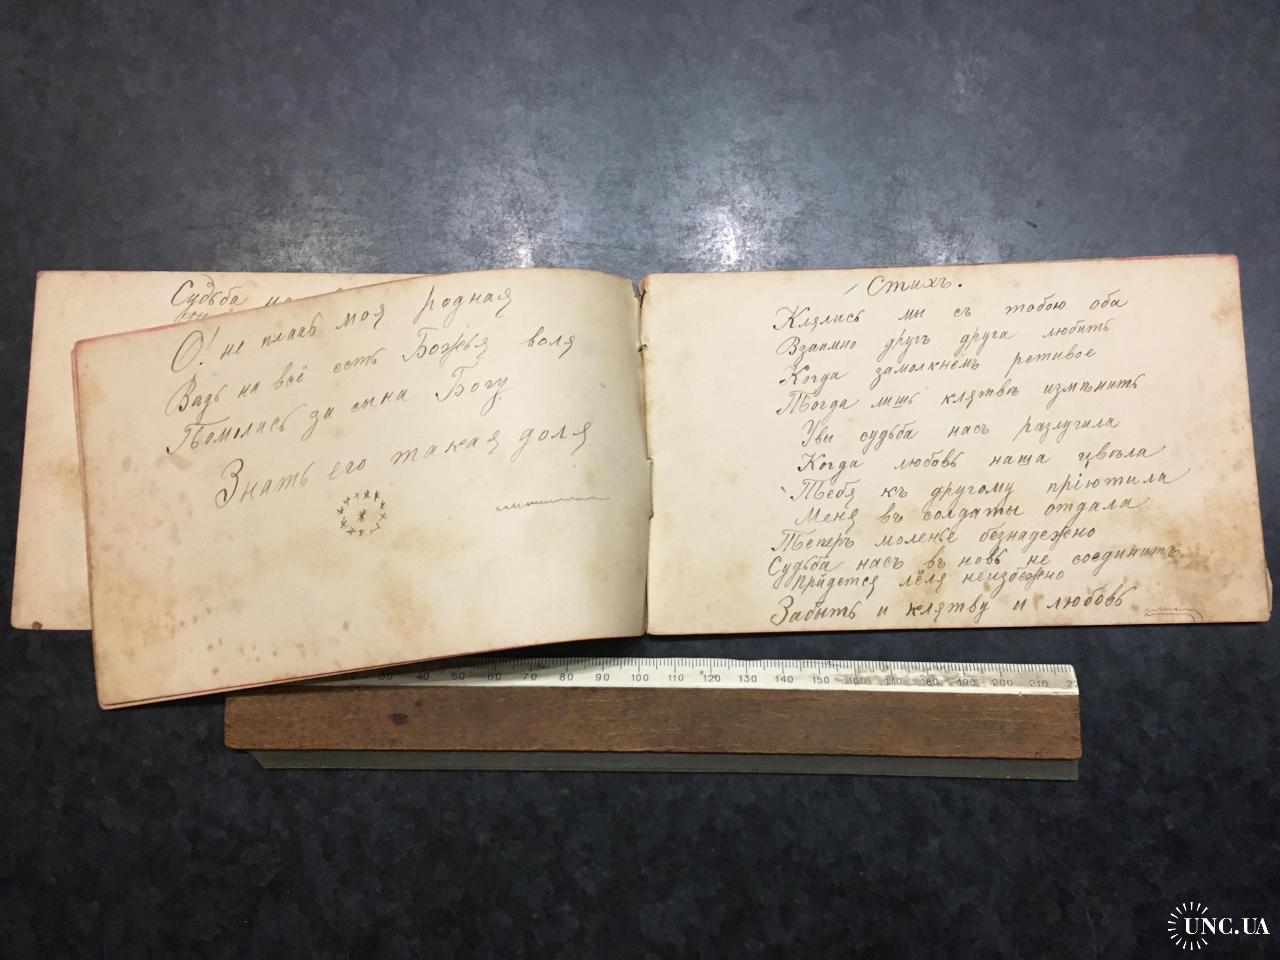 Судьба
О! не плачь моя родная
Вядь на всё есть Божья воля
Помолись за сына Богу
Знать его такая доля
Стихъ.
Клялись мы съ тобою оба
Взаимно другъ друга любить
Когда замолкнемъ ретивое
Тогда лишь клятвъ измѣнить
Увы судьба насъ разлучила
Когда любовь наша цвѣла
Тебя къ другому пріютила
Меня въ солдаты отдала
Теперь моленье безнадежно
Судьба насъ въ новь не соединитъ
Прйдется лёля неизбежно
Забыть и клятву и любовь
30 40 50 60 70 80 90 100 110 120 130 140 150 160 170 180 190 200 210
UNC.UA